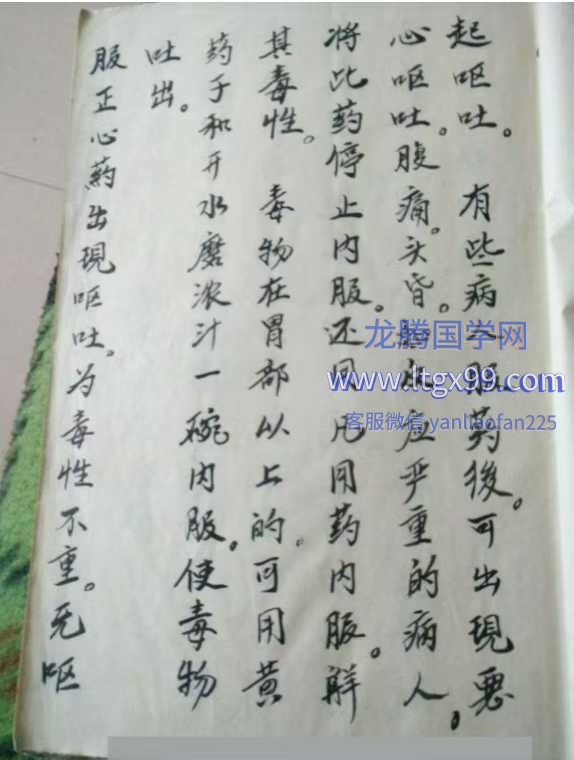 起呕吐。有些病服药後。可出現恶
心呕吐。腹痛。头昏。反应严重的病人。
将此药停止内服。还凡用药内服。解
其毒性。毒物在胃部以上的。可用黄
药子和开水磨浓汁一碗内服。使毒物
吐出。
服正心葯出現呕吐。为毒性不重。无呕
龙腾国学网
www.ltgx99.com
客服微信 yanliaofan225